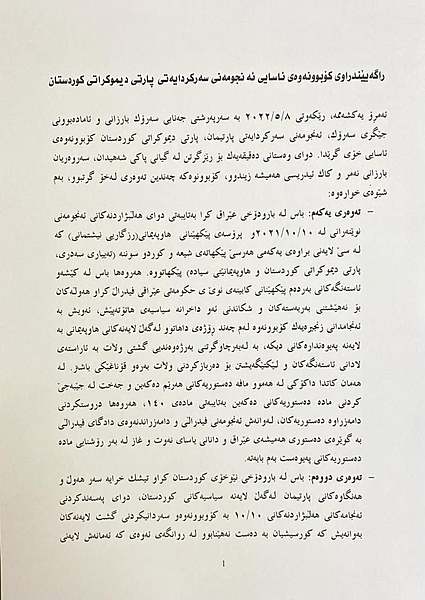 راگەیێندراوی کۆبوونەوەی ئاسایی ئە نجومەنی سەرکردایەتی پارتی دیموکراتی کوردستان
ئەمڕۆ یەکشەممە، ڕێکەوتی ٢٠٢٢/٥/٨ بە سەرپەرشتی جەنابی سەرۆک بارزانی و ئامادەبوونی
جێگری سەرۆک، ئەنجومەنی سەرکردایەتی پارتیمان، پارتی دیموکراتی کوردستان کۆبوونەوەی
ئاسایی خۆی گرێدا. دوای وەستانی دەقیقەیەک بۆ ڕێزگرتن لـە گیانی پاکی شەهیدان، سەروەریان
بارزانی نەمر و کاک ئیدریسی هەمیشە زیندوو، کۆبوونەوکە چەندین تەوەری لـەخۆ گرتبوو، بەم
شێوەی خوارەوە:
– تەوەری یەکەم: باس لـە بارودۆخی عێراق کرا بەتایبەتی دوای هەڵبژاردنەکانی ئەنجومەنی
نوێنەرانی لـە ٢٠٢١/١٠/١٠و پرۆسەی پێکهێنانی هاوپەیمانی(رزگاریی نیشتمانی) کە
لـە سێ لایەنی براوەی یەکەمی هەرسێ پێکهاتەی شیعە و کوردو سوننە (تەییاری سەدری،
پارتی دیموکراتی کوردستان و هاوپەیمانێتی سیادە) پێکهاتووە. هەروەها باس لـە کێشەو
ئاستەنگەکانی بەردەم پێکهێنانی کابینەی نوێ ی حکومەتی عێراقی فیدراڵ کراو هەوڵەکان
بۆ نەهێشتنی بەربەستەکان و شکاندنی ئەو داخرانە سیاسیەی هاتۆتەپێش، ئەویش بە
ئەنجامدانی زنجیرەیەک کۆبوونەوە لـەم چەند ڕۆژەی داهاتوو لـەگەڵ لایەنەکانی هاوپەیمانی بە
لایەنە پەیوەندارەکانی دیکە، لـە بـەرچاوگرتنی بەرژەوەندیی گشتی ولات بە ئاراستەی
لادانی ئاستەنگەکان و لێکتێگەیشتن بۆ دەربازکردنی ولات بەرەو قۆناغێکی باشتر. لـە
هەمان کاتدا داکۆکی لـە هەموو مافە دەستوریەکانی هەرێم دەکەین و جەخت لـە جێبەجێ
کردنی مادە دەستوریەکانی دەکەین بەتایبەتی مادەی ١٤٠، هەروەها دروستکردنی
دامەزراوە دەستوریەکان، لـەوانەش ئەنجومەنی فیدراڵی و دامەزراندنەوەی دادگای فیدراڵی
بە گوێرەی دەستوری هەمیشەی عێراق و دانانی یاسای نەوت و غاز لـە بەر ڕۆشنایی مادە
دەستوریەکانی پەیوەست بەم بابەتە.
– تەوەری دووەم: باس لـە بارودۆخی نێوخۆی کوردستان کراو تیشک خرایە سەر هەوڵ و
هەنگاوەکانی پارتیمان لـەگەڵ لایەنە سیاسیەکانی کوردستان، دوای پەسەندکردنی
ئەنجامەکانی هەڵبژاردنەکانی ١٠/١٠ بە کۆبوونەوەو سەردانیکردنی گشت لایەنەکان
بەوانەیش کە کورسیشیان بە دەست نەهێنابوو لـە ڕوانگەی ئەوەی کە ئەمانەش لایەنی
١